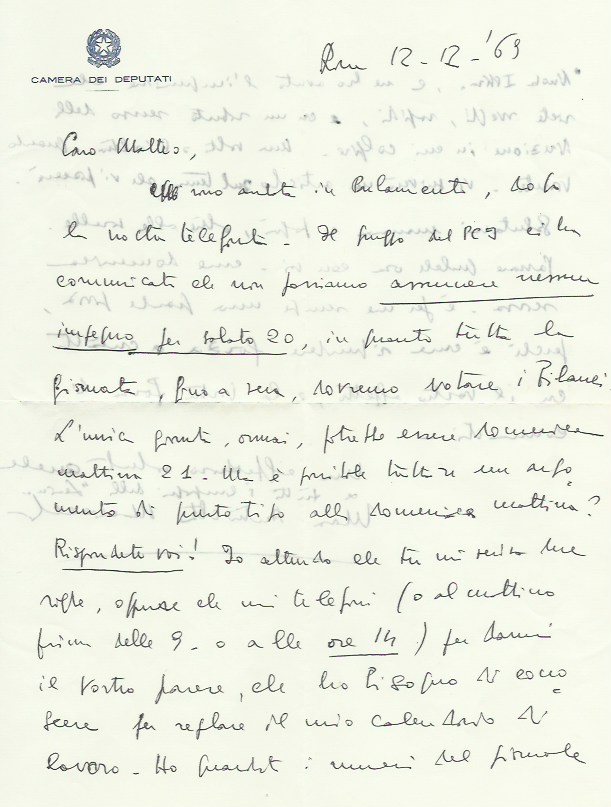 CAMERA DEI DEPUTATI
Roma 12-12-'69
Caro Matteo,
sono andata in Parlamento, dopo
la vostra telefonata - Il gruppo del PCI ci ha
comunicato che non possiamo assumere nessun
impegno per sabato 20, in quanto tutta la
giornata, fino a sera, dovremo votare i Bilanci.
L'unica giornata, ormai, potrebbe essere domenica
mattina 21 - Ma è possibile trattare un argo
mento di questo tipo alla domenica mattina?
Rispondete voi! Io attendo che tu mi scriva due
righe, oppure che mi telefoni (o al mattino
prima delle 9 - o alle ore 14) per darmi
il vostro parere, che ho bisogno di cono
scere per regolare il mio calendario di
lavoro - Ho guardato i numeri del giornale